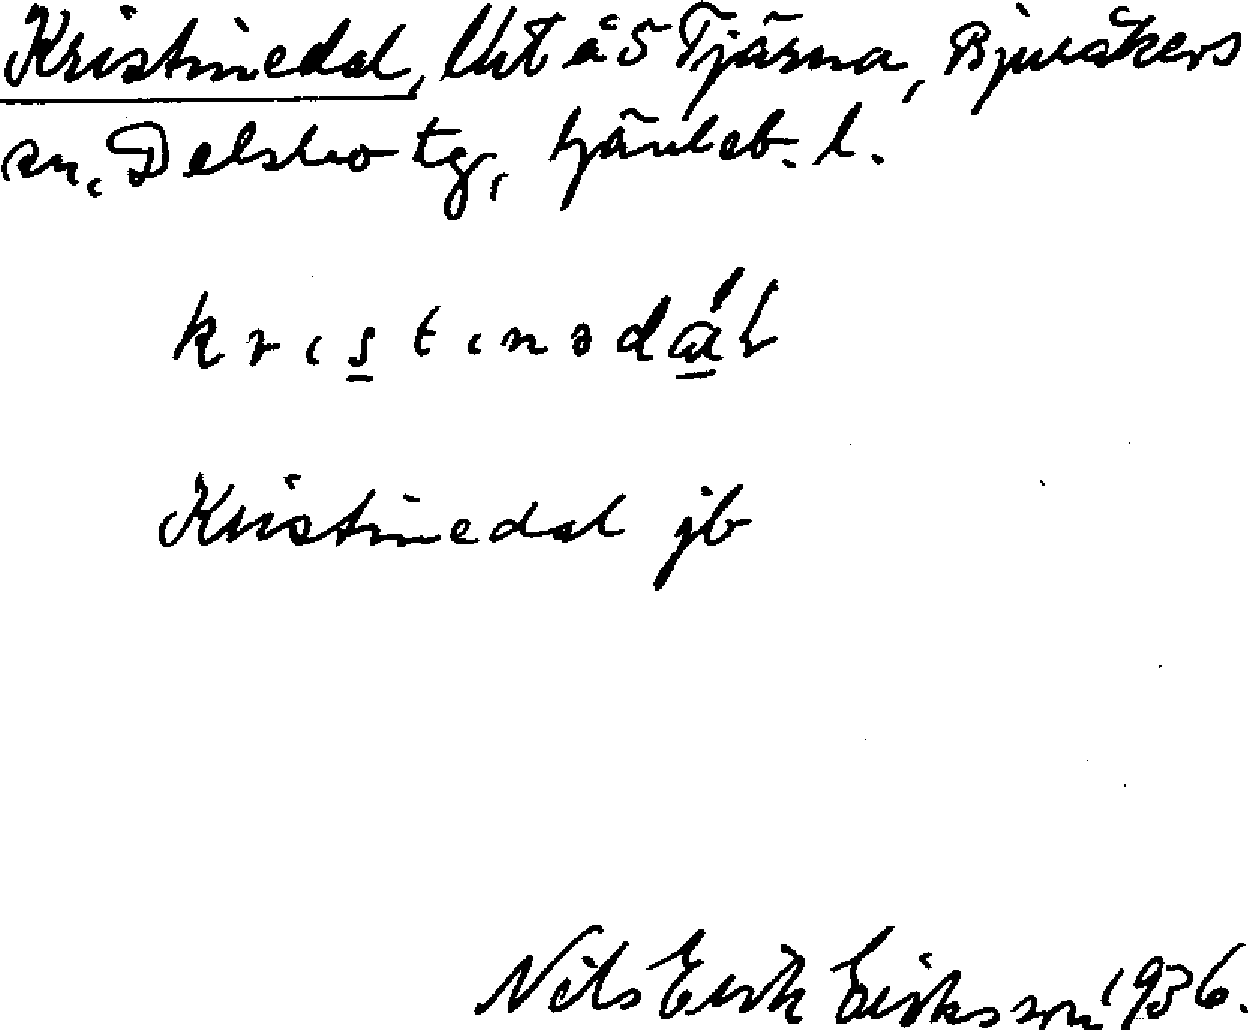 Kristinedal, Uht å 5 Tjärna, Bjuråkers
sn, Delsbo tg, Gävleb. l.
kristinədàl
Kristinedal jb
Nils Erik Eriksson 1936.